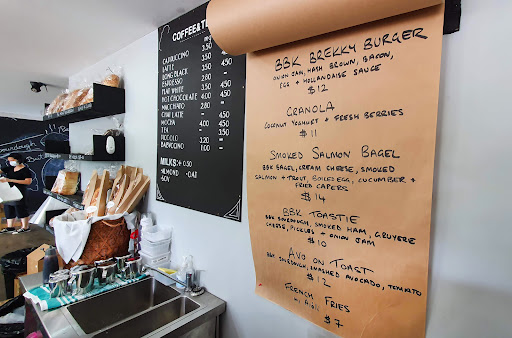 COFFEE & TE
CAPPUCCINO 3.50
LATTE 3.50 4.50
LONG BLACK 3.50
ESPRESSO 2.80
FLAT WHITE 3.50 4.50
HOT CHOCOLATE 4.00 4.50
MACCHIATO 2.80
CHAI LATTE 4.50
MOCHA 4.00 4.50
TEA 3.50
PICCOLO 3.20
BABYCCINO 1.00
MILKS:+0.50
ALMOND OAT
SOY
BBK BREKKY BURGER
ONION JAM, HASH BROWN, BACON,
EGG + HOLLANDAISE SAUCE
$12
GRANOLA
COCONUT YOGHURT + FRESH BERRIES
$11
SMOKED SALMON BAGEL
BBK BAGEL, CREAM CHEESE, SMOKED
SALMON + TROUT, BOILED EGG, CUCUMBER +
FRIED CAPERS
$14
BBK TOASTIE
BBK SOURDOUGH, SMOKED HAM, GRUYERE
CHEESE, PICKLES + ONION JAM
$10
AVO ON TOAST
BBK SOURDOUGH, SMASHED AVOCADO, TOMATO
$12
FRENCH FRIES
W/ AIOLI
$7